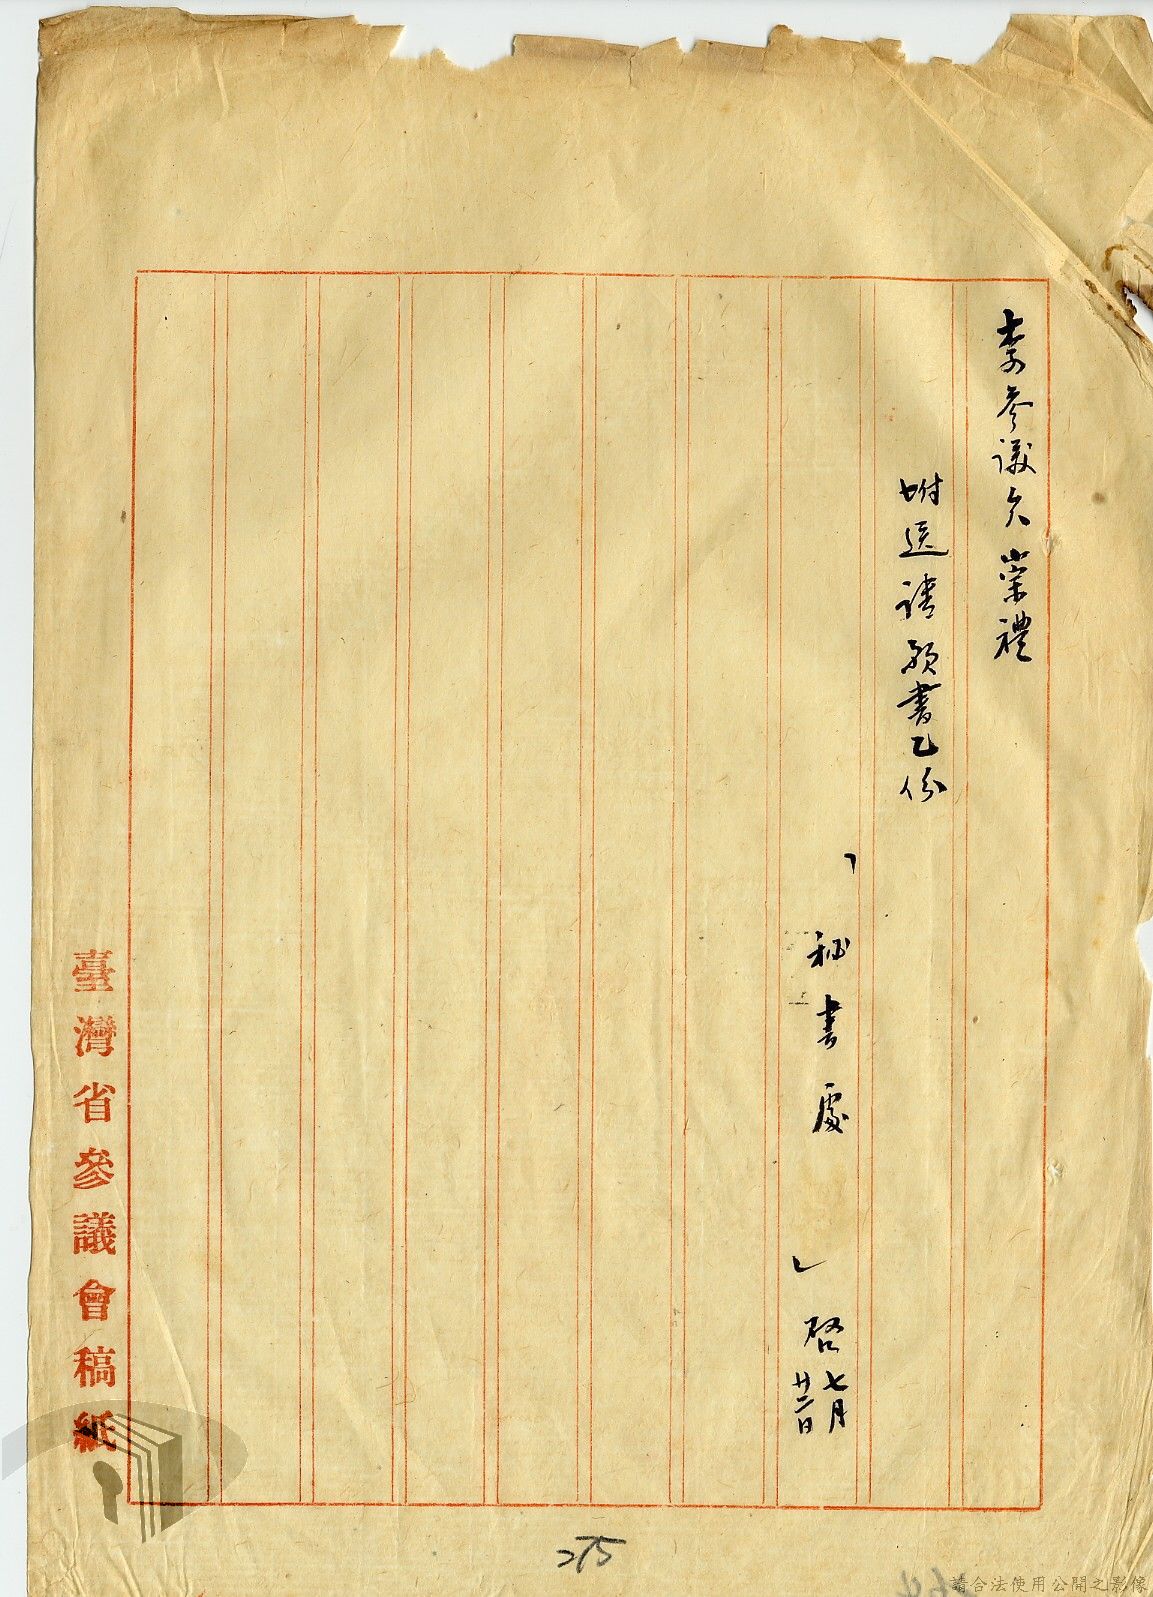 李參議員崇禮
附送請願書乙份
「秘書處」啓 七月
廿二日
臺灣省參議會稿紙
275
請合法使用公開之影像